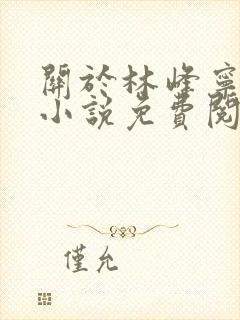 關於林峰寧
小說免費閱
僅允